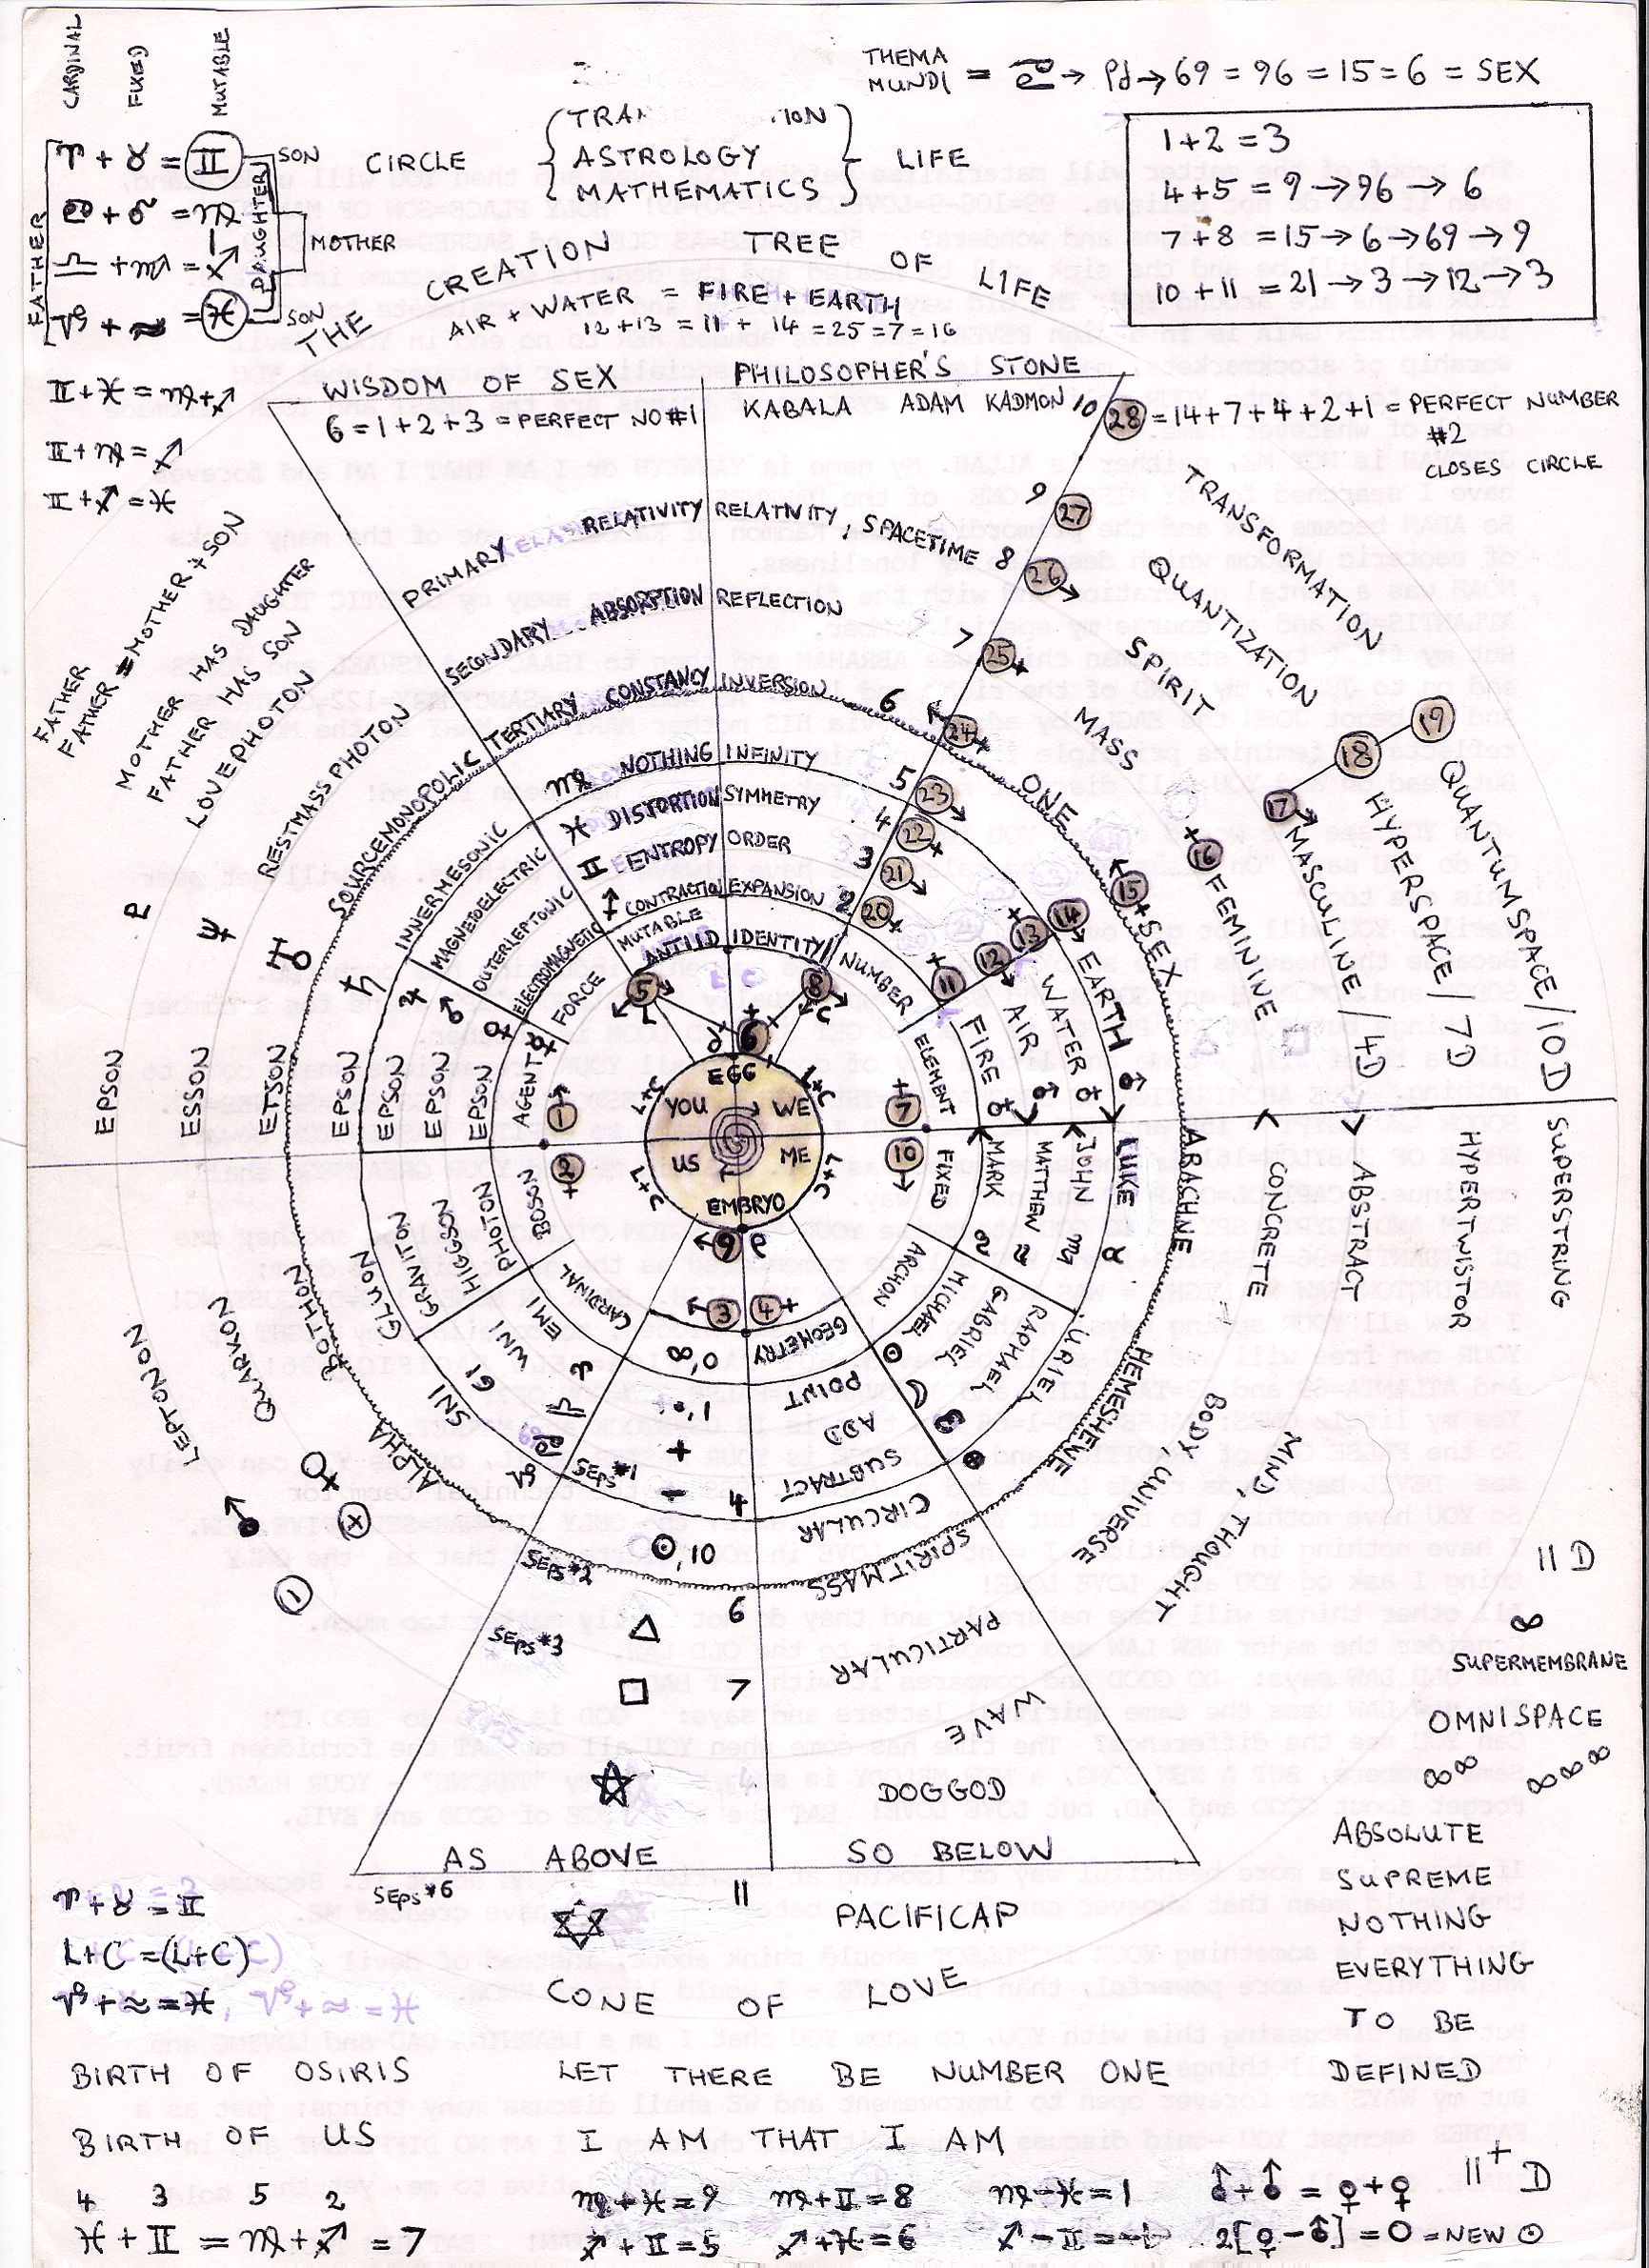 CARDINAL
FIXED
MUTABLE
♈ + ♉ = ♊
♋ + ♌ = ♍
♎ + ♏ = ♐
♑ + ♒ = ♓
FATHER
DAUGHTER
SON
MOTHER
SON
♊+♓ = ♍+♐
♊+♍ = ♐
♊+♐ = ♓
THEMA
MUNDI = ♋ → → 69 = 96 = 15 = 6 = SEX
1+2 = 3
4+5 = 9 → 96 → 6
7+8 = 15 → 6 → 69 → 9
10 + 11 = 21 → 3 → 12 → 3
CIRCLE
ASTROLOGY
MATHEMATICS
LIFE
THE CREATION TREE OF LIFE
AIR + WATER = FIRE + EARTH
12+13 = 11 + 14 = 25 = 7 = 16
WISDOM OF SEX
PHILOSOPHER'S STONE
6 = 1+2+3 = PERFECT NO#1
KABALA ADAM KADMON 10
28 = 14+7+4+2+1 = PERFECT NUMBER
#2
CLOSES CIRCLE
PRIMARY RELATIVITY RELATIVITY, SPACETIME 8
9 27
26
SECONDARY ABSORPTION REFLECTION 7
25
TERTIARY CONSTANCY INVERSION 6
24
♍ NOTHING INFINITY 5
23
♓ DISTORTION SYMMETRY 4
22
♊ ENTROPY ORDER 3
21
♐ CONTRACTION EXPANSION 2
20
MUTABLE
ANTIID IDENTITY 1
NUMBER
TRANSFORMATION
QUANTIZATION
SPIRIT
MASS
ONE
SEX
FEMININE
MASCULINE / 4D
HYPERSPACE / 7D
QUANTUMSPACE / 10D
15
16
17
18
19
11
12
13
14
FIRE
AIR
WATER
EARTH
ELEMENT
FATHER
FATHER = MOTHER + SON
MOTHER HAS DAUGHTER
FATHER HAS SON
LOVEPHOTON
RESTMASSPHOTON
SOURCEMONOPOLIC
INNERMESONIC
MAGNETOELECTRIC
OUTERLEPTONIC
ELECTROMAGNETIC
FORCE
AGENT
EPSON
ESSON
ETSON
EPSON
EPSON
EPSON
EPSON
5
8
6
1
2
7
10
9
3
4
EGG
YOU
WE
US
ME
EMBRYO
L+C
L+C
L+C
L+C
FIXED
MARK
MATTHEW
JOHN
LUKE
♌
♒
♏
♉
ARACHNE
CONCRETE
ABSTRACT
HYPERTWISTOR
SUPERSTRING
BOSON
PHOTON
HIGGSON
GRAVITON
GLUON
BOTHON
QUARKON
LEPTONON
CARDINAL
EMI
WNI
GI
SNI
ALPHA
♎
♑
ARCHON
MICHAEL
GABRIEL
RAPHAEL
URIEL
HEMESHEWE
BODY, UNIVERSE
MIND, THOUGHT
GEOMETRY
POINT
ADD
SUBTRACT
CIRCULAR
SPIRITMASS
PARTICULAR
WAVE
0,∞
+
−
4
10
SEPS#1
SEPS#2
SEPS#3
6
7
DOGGOD
AS ABOVE
SO BELOW
SEPS#6
11
PACIFICAP
CONE OF LOVE
11 D
∞
SUPERMEMBRANE
OMNISPACE
∞∞
∞∞∞
ABSOLUTE
SUPREME
NOTHING
EVERYTHING
TO BE
DEFINED
11+ D
♈ + ♉ = ♊
L+C = (L+C)
♑ + ♒ = ♓
BIRTH OF OSIRIS
LET THERE BE NUMBER ONE
BIRTH OF US
I AM THAT I AM
4 3 5 2
♓ + ♊ = ♍ + ♐ = 7
♍+♓=9 ♍+♊=8 ♍−♓=1
♐+♊=5 ♐+♓=6 ♐−♊=-1
♂+♂ = ♀+♀
2[♀−♂] = 0 = NEW ☉